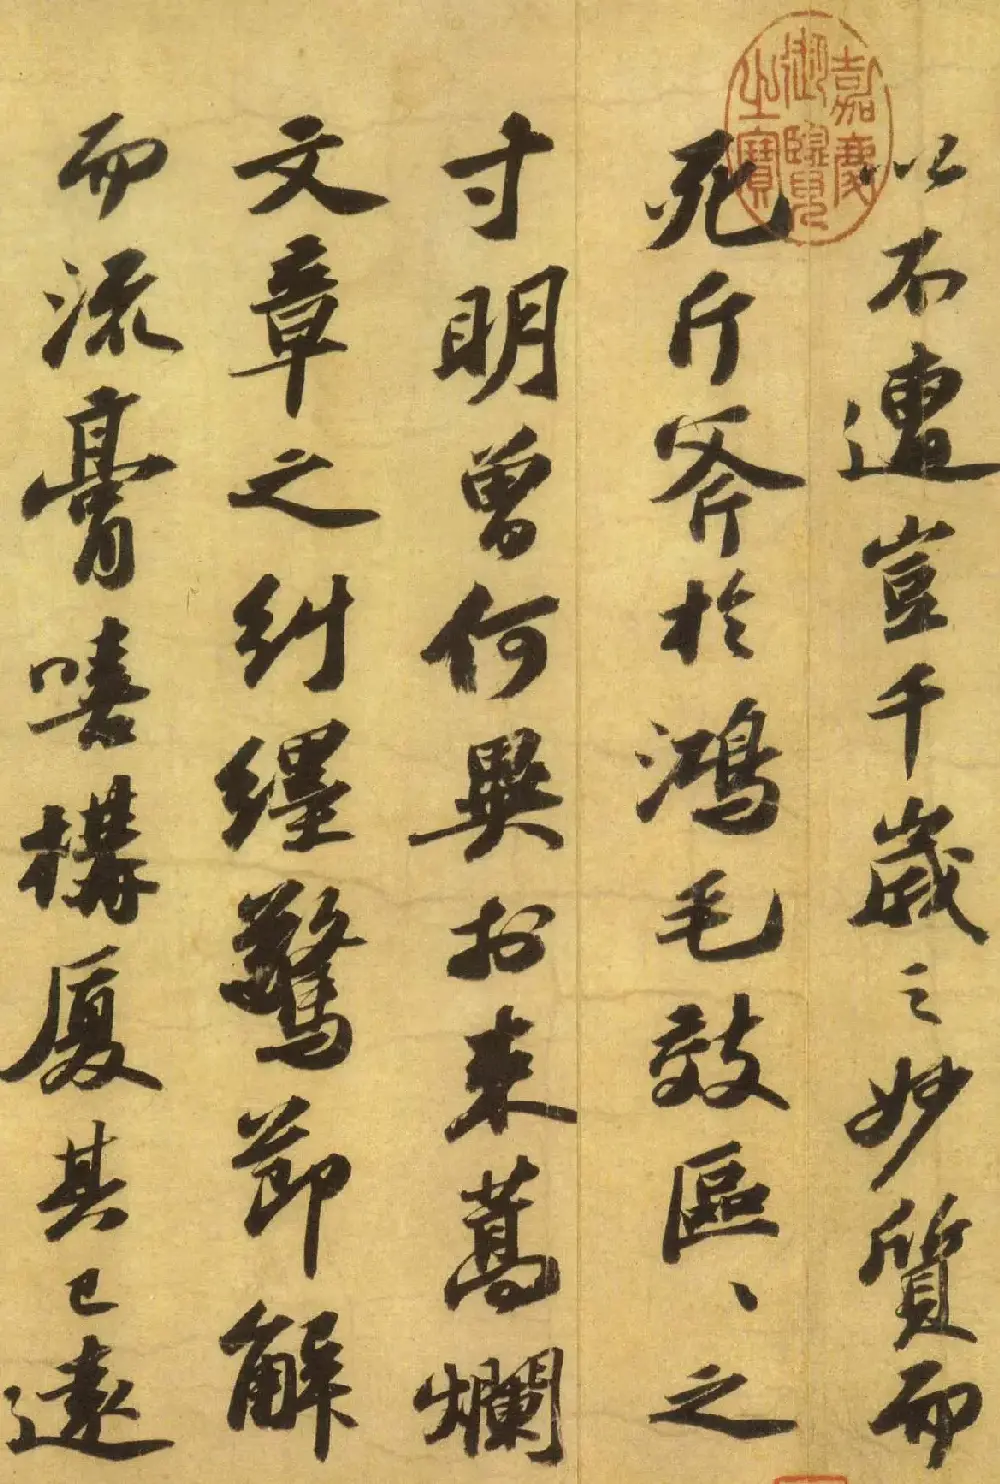 嘉慶
御覽
之寶
以不遭豈千歲之妙質而
死斤斧於鴻毛效區、之
寸明曾何異於束蒿爛
文章之糾纆驚節解
而流膏嘻構厦其已遠